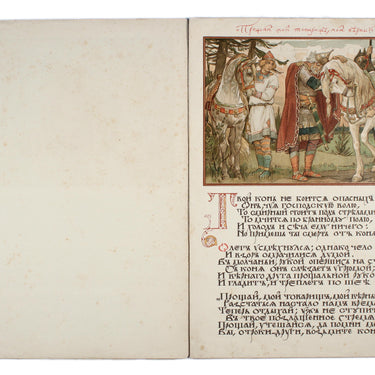 „Прощай мой товарищъ, мой вѣрны
Твой конь не боится опасныхъ
Онъ, чуя господскую волю,
То смирный стоитъ подъ стрѣлами
То мчится по бранному полю,
И холодъ и сѣча ему ничего:
Но примешь ты смерть отъ кон
Олегъ усмѣхнулся; однако чело
И взоръ омрачилися думой.
Въ молчаньи, рукой опершись на с
Съ коня онъ слѣзаетъ угрюмой;
И вѣрнаго друга прощальной рукой
И гладитъ, и треплетъ по шеѣ
„Прощай, мой товарищъ, мой вѣрны
Разстаться настало намъ время:
Теперь отдыхай; ужъ не ступитъ
Въ твое позлащенное стремя
Прощай, утѣшайся, да помни ме
Вы, отроки-други, возьмите кон